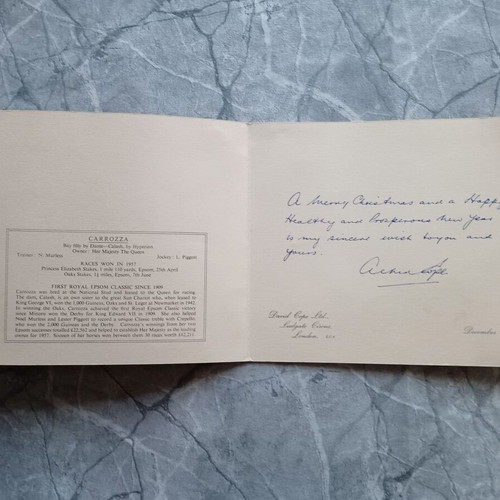 CARROZZA
Bay filly by Dante—Calash, by Hyperion
Owner: Her Majesty The Queen
Trainer: N. Murless Jockey: L. Piggott
RACES WON IN 1957
Princess Elizabeth Stakes, 1 mile 110 yards, Epsom, 25th April
Oaks Stakes, 1½ miles, Epsom, 7th June
FIRST ROYAL EPSOM CLASSIC SINCE 1909
Carrozza was bred at the National Stud and leased to the Queen for racing.
The dam, Calash, is an own sister to the great Sun Chariot who, when leased to
King George VI, won the 1,000 Guineas, Oaks and St. Leger at Newmarket in 1942.
In winning the Oaks, Carrozza achieved the first Royal Epsom Classic victory
since Minoru won the Derby for King Edward VII in 1909. She also helped
Noel Murless and Lester Piggott to record a unique Classic treble with Crepello
who won the 2,000 Guineas and the Derby. Carrozza's winnings from her two
Epsom successes totalled and helped to establish Her Majesty as the leading
owner for 1957. of her horses won between them 30 races worth £62,211.
A Merry Christmas and a Happy
Healthy and Prosperous New Year
is my sincere wish to you and
yours.
Cope
David Cope Ltd.,
Ludgate Circus,
London, E.C.4
December